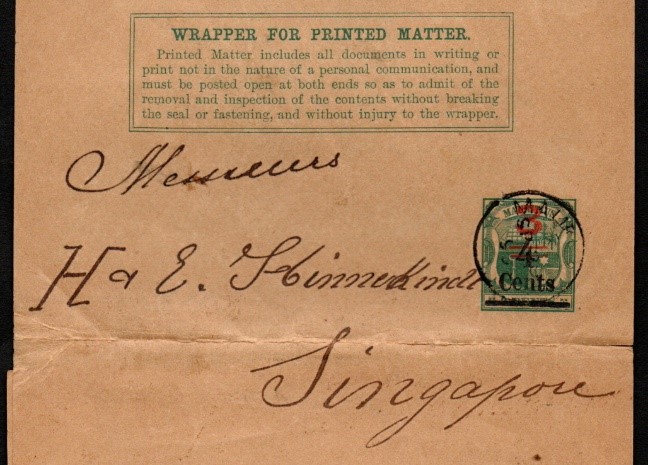 WRAPPER FOR PRINTED MATTER.
Printed Matter includes all documents in writing or
print not in the nature of a personal communication, and
must be posted open at both ends so as to admit of the
removal and inspection of the contents without breaking
the seal or fastening, and without injury to the wrapper.
Messieurs
H & E. Hinnekindt
Singapore
3
4
Cents